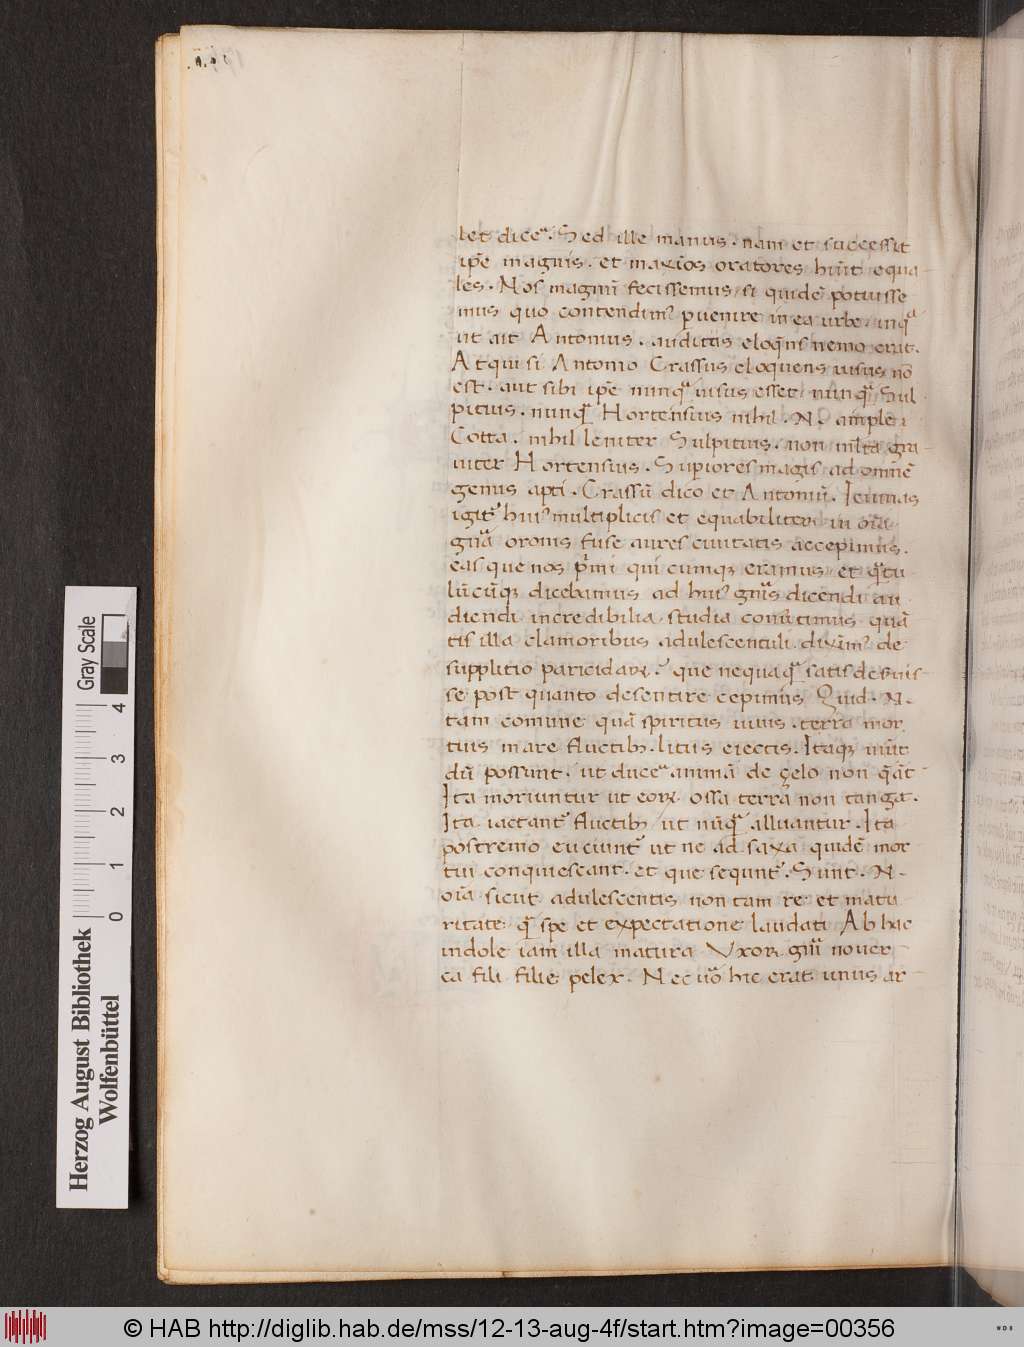 bet dicẽ. Sed ille manus. nam et successit
ip̃e magnis. et maxĩos oratores hũit equa
les. Nos magnũ fecissemus si quidẽ potuisse
mus quo contendimꝰ puenire in ea urbe. inq̃
ut ait Antonius. auditus eloq̃ns nemo erat.
Atqui si Antonio Crassus eloquens uisus nõ
est. aut sibi ip̃e nunq̃ uisus esset nunq̃ Sul
pitius. nunq̃ Hortensius nihil. N. ample
Cotta. nihil leniter Sulpitius. non multa gra
uiter Hortensius. Supiores magis ad omnẽ
genus apti. Crassũ dico et Antoniũ. Ieiunas
igit̃ huiꝰ multiplicis et equabiliter in oĩa
gña orõnis fuse aures ciuitatis accepimus.
eas que nos p̃mi qui cumqꝫ eramus et q̃tu
lũcũqꝫ dicebamus ad huiꝰ gñis dicendi au
diendi incredibilia studia conũtimus quã
tis illa clamoribus adulescentuli diximꝰ de
supplitio paricidaꝝ? que nequaq̃ satis deruis
se post quanto desentire cepimus Quid. N.
tam comune quã spiritus uiuis. terra mor
tuis mare fluctibꝫ. litus eiectis. Itaqꝫ uiũt
dũ possunt. ut ducẽ animã de çelo non q̃ãt
Ita moriuntur ut eoꝝ ossa terra non tangat.
Ita iactant̃ fluctibꝫ ut nũq̃ alluantur. Ita
postremo eiiciunt̃ ut ne ad saxa quidẽ mor
tui conquiescant. et que sequnt̃. Sunt. N.
oĩa sicut adulescentis non tam re et matu
ritate q̃ spe et expectatione laudati Ab hac
indole iam illa matura Vxor gñi nouer
ca fili filie pelex. Nec ũo hic erat unus ar
Herzog August Bibliothek
Wolfenbüttel
Gray Scale
0 1 2 3 4
© HAB http://diglib.hab.de/mss/12-13-aug-4f/start.htm?image=00356